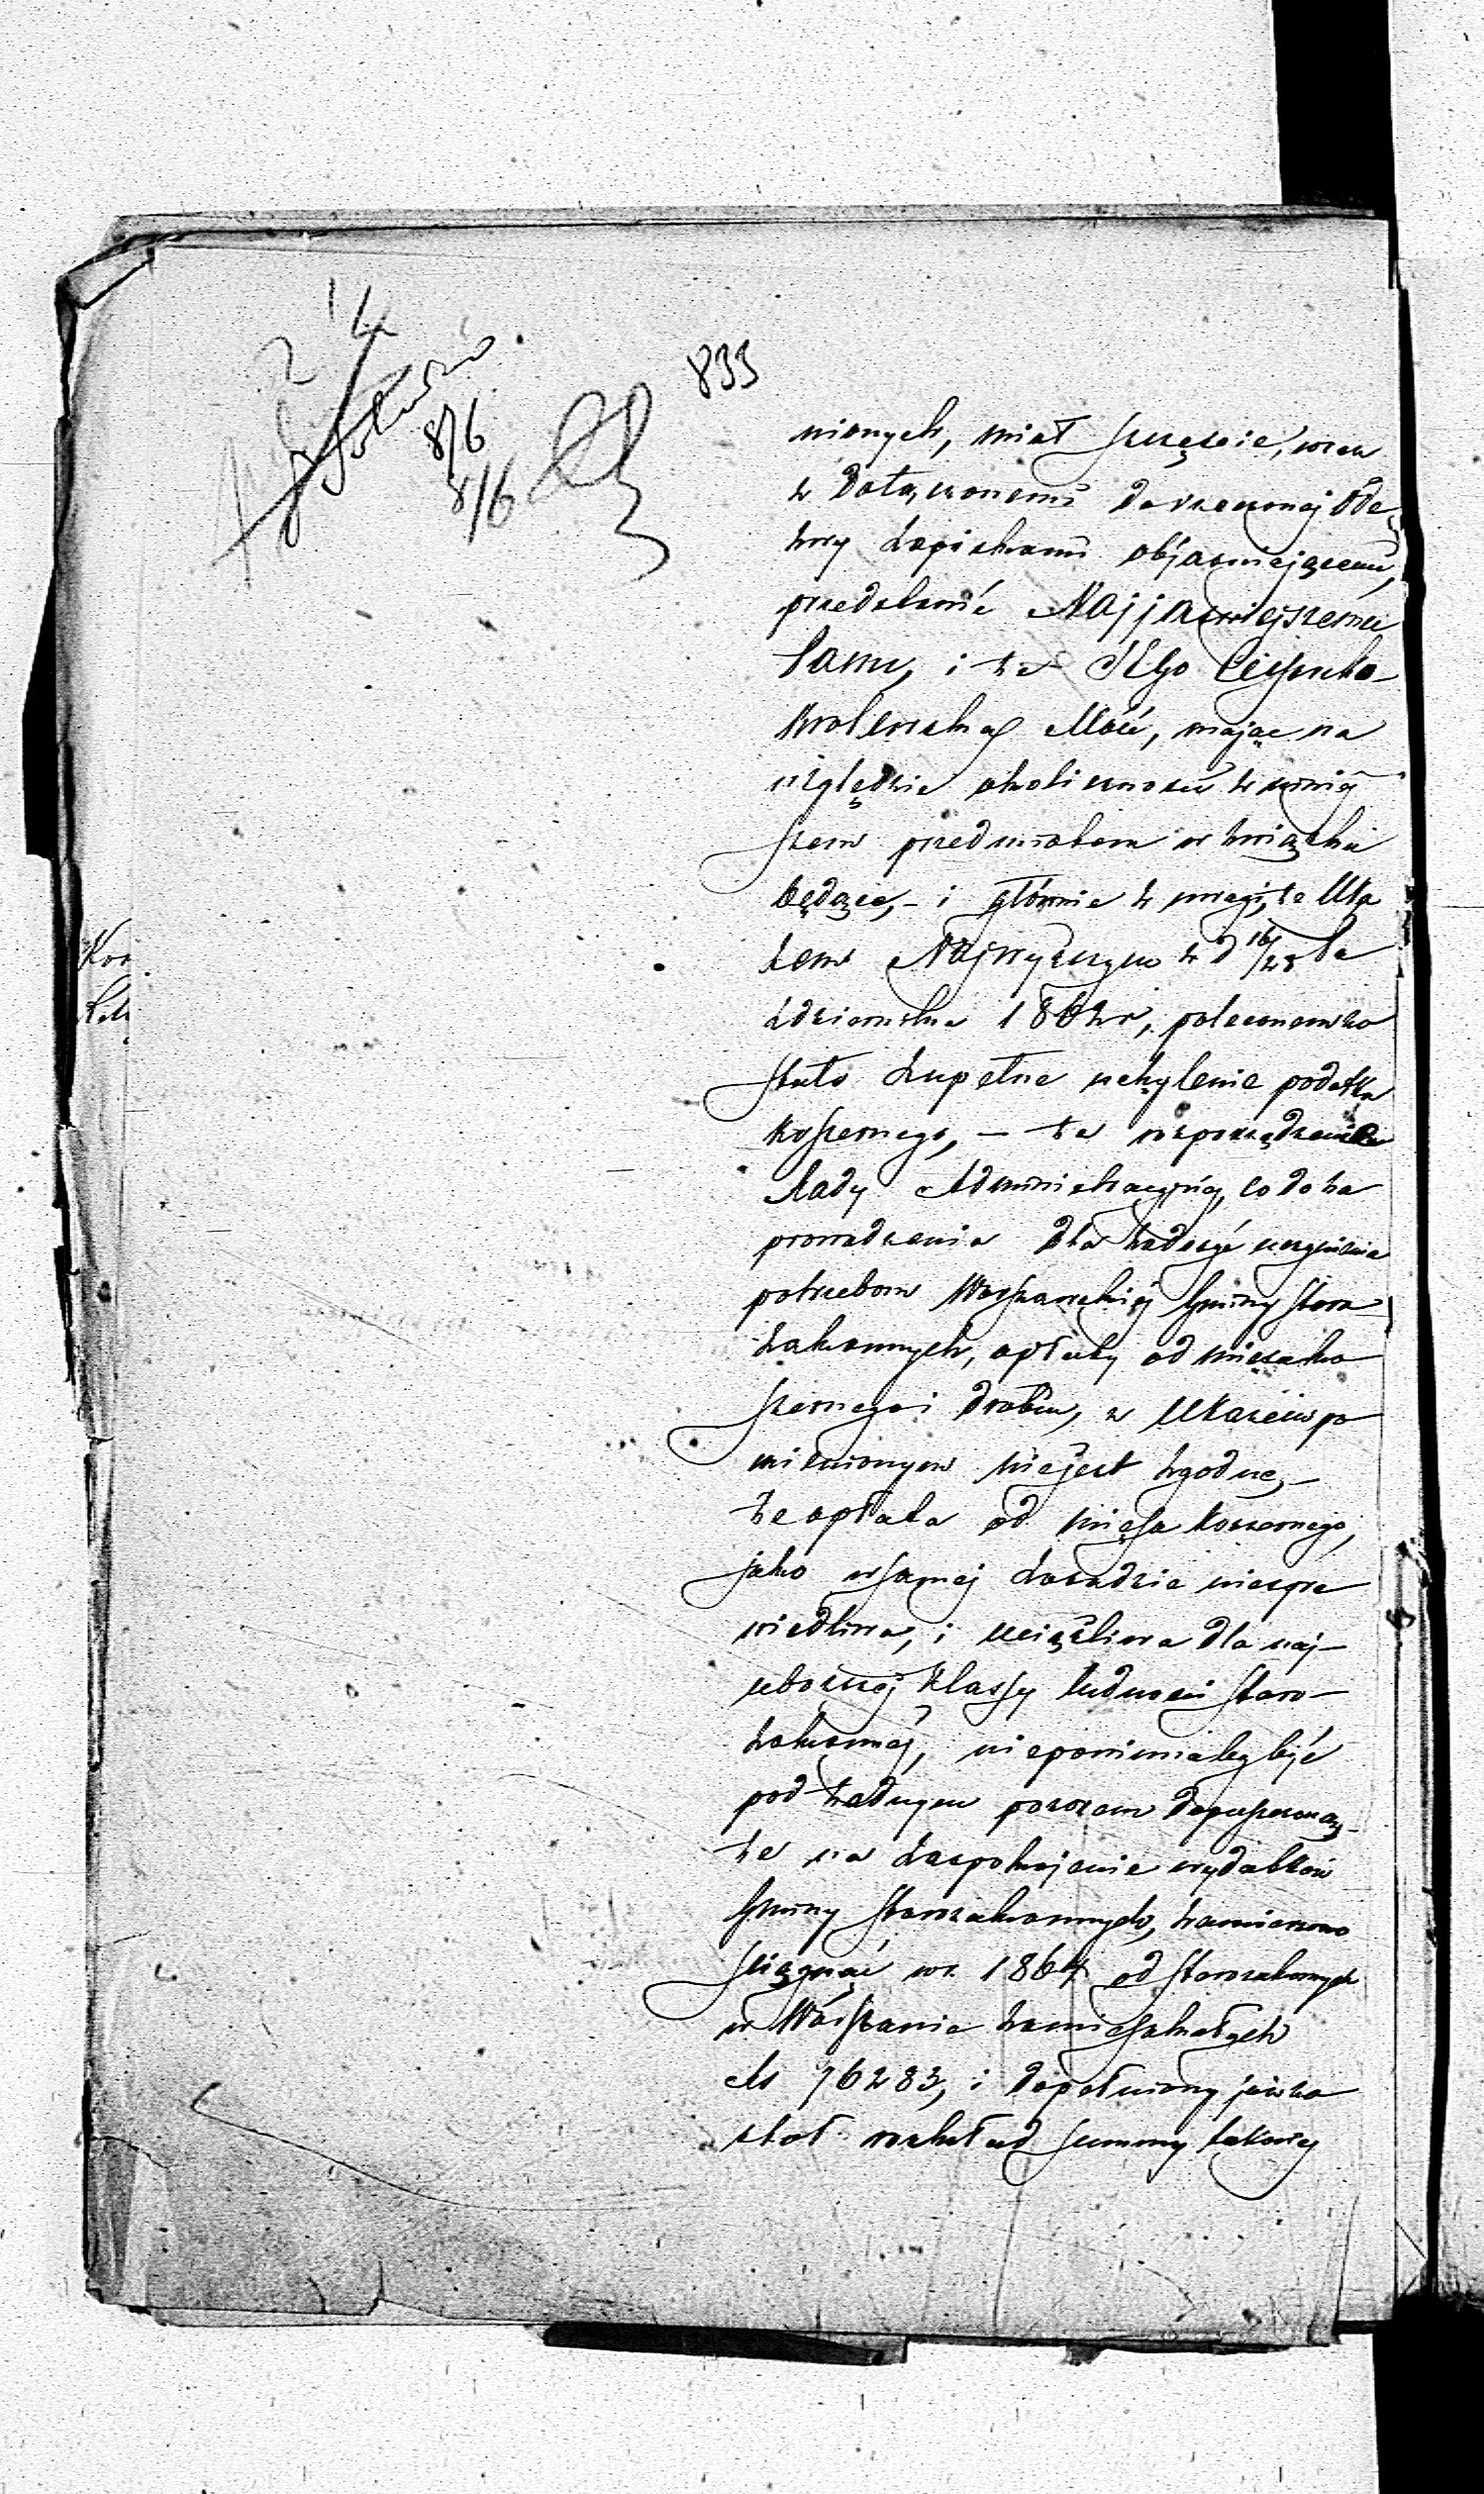 833
8/6
8/6
nionych, miał szczęście, wraz
z dołączonemi do rzeczonej Ode
zwy zapiskami objaśniającemi,
przedstawić Najjaśniejszemu
Panu, i że JEgo Cesarsko-
Królewska Mość, mając na
względzie okoliczności z niniej
szem przedmiotem w związku
będące, - i głównie z uwagi, że Uka
zem Najwyższym z d 16/28 Pa
ździernika 1862 r, poleconem zo
stało zupełne uchylenie podatku
koszernego, - że rozporządzenie
Rady Administracyjnej, co do za
prowadzenia dla zadosyć uczynienia
potrzebom Warszawskiej Gminy Staro
zakonnych, opłaty od mięsa ko
szernego i drobiu, z Ukazem po
mienionym niejest zgodne, -
że opłata od mięsa koszernego,
jako w samej zasadzie niespra
wiedliwa, i uciążliwa dla naj-
uboższej klassy ludności Staro-
zakonnej, niepowinnaby być
pod żadnym pozorem dopuszczoną, -
że na zaspokojenie wydatków
Gminy Starozakonnych, zamierzono
ściągnąć w r. 1864 od Starozakonnych
w Warszawie zamieszkałych
Rs 76283, i dopełniony już zo
stał rozkład summy takowej